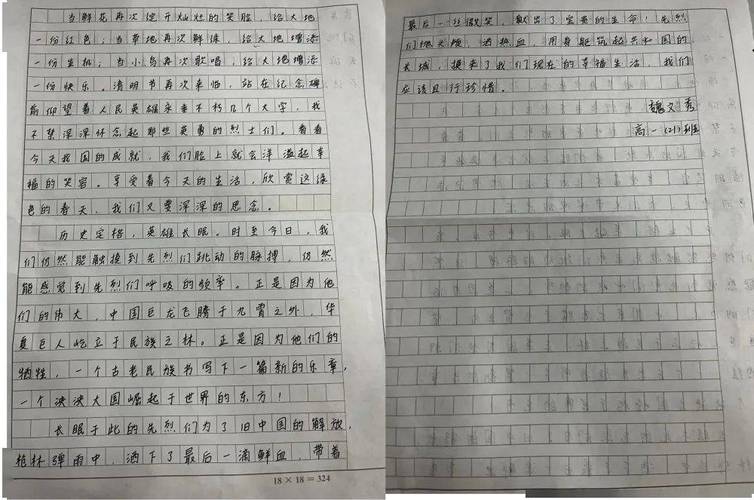 当鲜花再次绽开灿烂的笑脸，给大地
一份红色；当草地再次鲜绿，给大地增添
一份生机；当小鸟再次歌唱，给大地增添
一份快乐。清明节再次来临，站在纪念碑
前仰望着人民英雄永垂不朽几个大字，我
不禁深深怀念起那些英勇的烈士们。看看
今天我国的成就，我们脸上就会洋溢起幸
福的笑容。享受着今天的生活，欣赏这绿
色的春天，我们又要深深的思念。
历史定格，英雄长眠。时至今日，我
们仍然能触摸到先烈们跳动的脉搏，仍然
能感觉到先烈们呼吸的频率。正是因为他
们的伟大，中国巨龙飞腾于九霄之外，华
夏巨人屹立于民族之林。正是因为他们的
牺牲，一个古老民族书写下一篇新的乐章，
一个泱泱大国崛起于世界的东方！
长眠于此的先烈们为了旧中国的解放，
枪林弹雨中，洒下了最后一滴鲜血，带着
18×18=324
最后一丝微笑，献出了宝贵的生命！先烈
们抛头颅，洒热血，用身躯筑起共和国的
长城，换来了我们现在的幸福生活，我们
应该且行珍惜。
魏文秀
高一(21)班